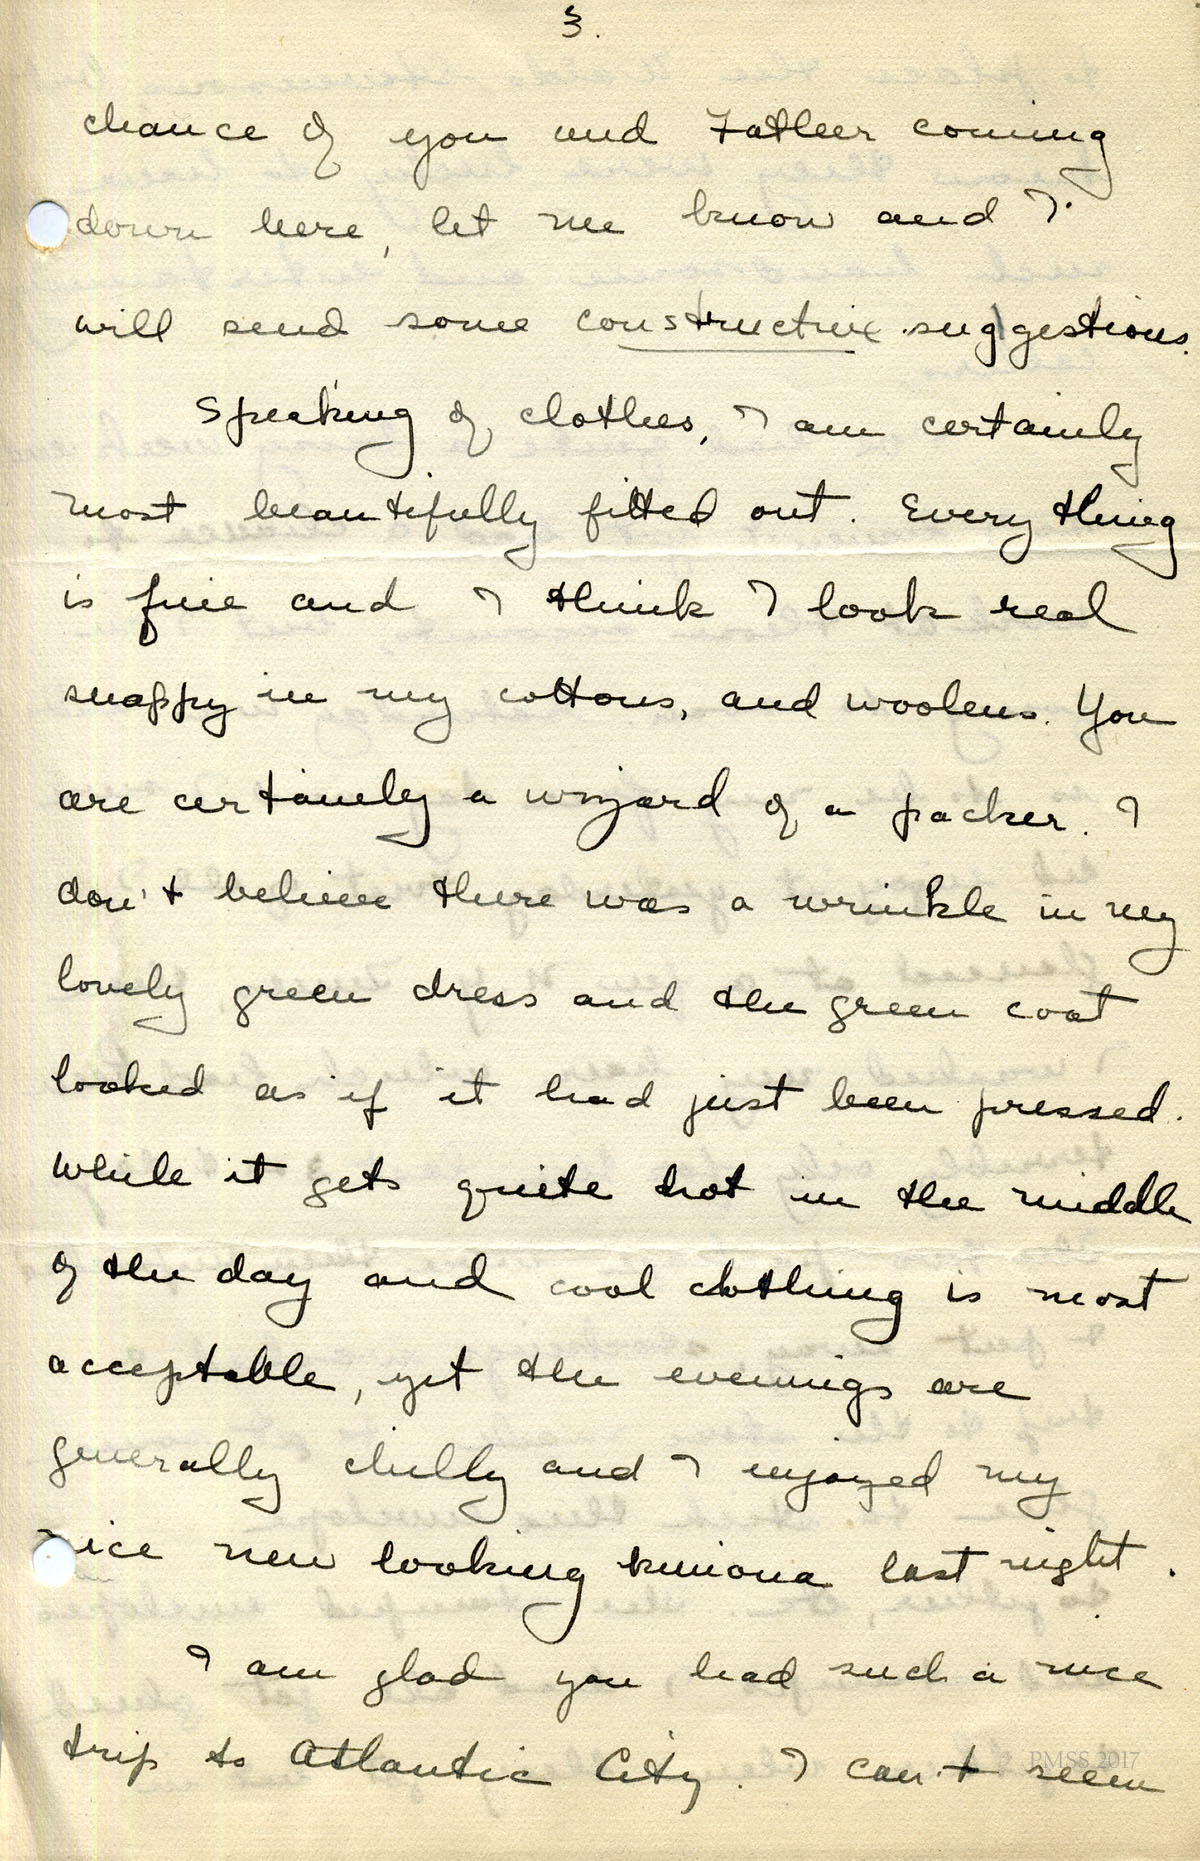 3.
chance of you and Father coming
down here, let me know and I
will send some constructive suggestions.
Speaking of clothes, I am certainly
most beautifully fitted out. Every thing
is fine and I think I look real
snappy in my cottons, and woolens. You
are certainly a wizard of a packer. I
don't believe there was a wrinkle in my
lovely green dress and the green coat
looked as if it had just been pressed.
While it gets quite hot in the middle
of the day and cool clothing is most
acceptable, yet the evenings are
generally chilly and I enjoyed my
nice new looking kimona last night.
I am glad you had such a nice
trip to Atlantic City. I can't seem
PMSS 2017